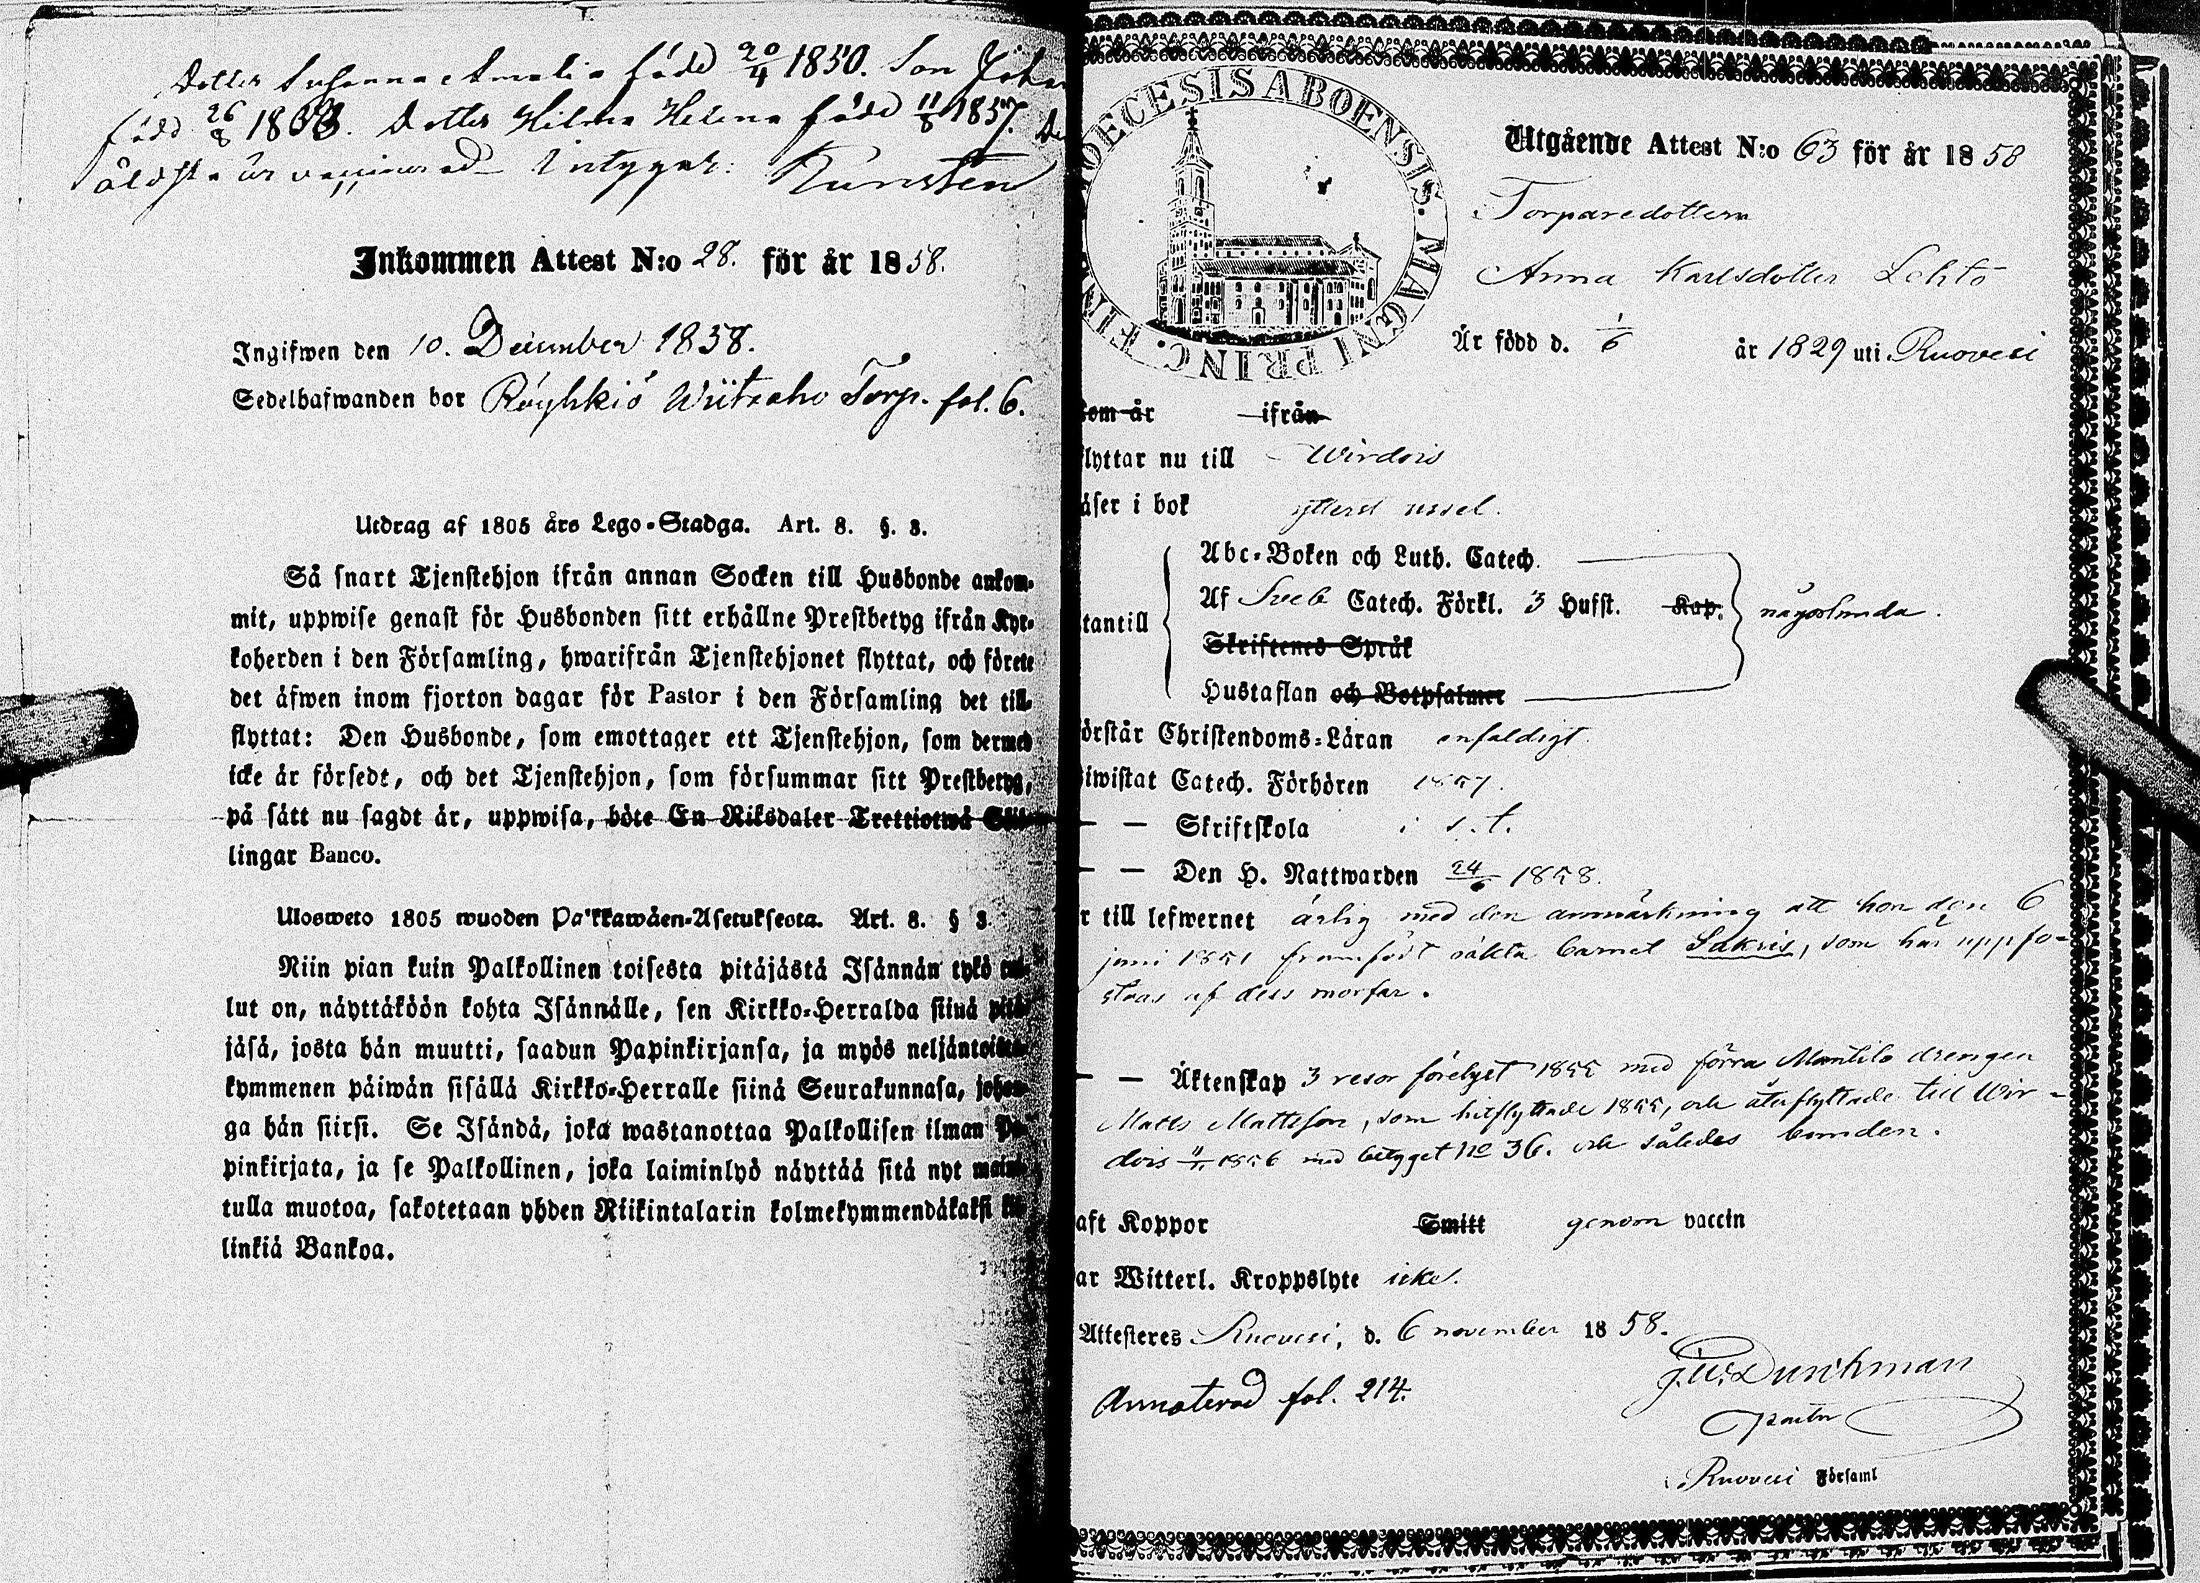 Dotter Susanna Amalia född 20/4 1850. Son Joha
född 26/8 1853. Dotter Hilma Helena född 11/8 1857. De
äldsta är vaccinerad Intygar: Runsten
Inkommen Attest N:o 28. för år 1858.
Ingifwen den 10. December 1858.
Sedelhafwanden bor Röyhkiö Wiitaaho Torp. fol. 6.
Utdrag af 1805 års Lego-Stadga. Art. 8. §. 3.
Så snart Tjenstehjon ifrån annan Socken till Husbonde ankom-
mit, uppwise genast för Husbonden sitt erhållne Prestbetyg ifrån Kyr-
koherden i den Församling, hwarifrån Tjenstehjonet flyttat, och förete
det äfwen inom fjorton dagar för Pastor i den Församling det till-
flyttat: Den Husbonde, som emottager ett Tjenstehjon, som dermed
icke är försedt, och det Tjenstehjon, som försummar sitt Prestbetyg,
på sätt nu sagdt är, uppwisa, böte En Riksdaler Trettiotwå Skil-
lingar Banco.
Ulosweto 1805 wuoden Palkkawäen-Asetuksesta. Art. 8. § 3.
Niin pian kuin Palkollinen toisesta pitäjästä Isännän tykö tul-
lut on, näyttäköön kohta Isännälle, sen Kirkko-Herralda siinä pitä-
jäsä, josta hän muutti, saadun Papinkirjansa, ja myös neljäntoista-
kymmenen päiwän sisällä Kirkko-Herralle siinä Seurakunnasa, johon-
ga hän siirsi. Se Isändä, joka wastanottaa Palkollisen ilman Pa-
pinkirjata, ja se Palkollinen, joka laiminlyö näyttää sitä nyt mainitulla
tulla muotoa, sakotetaan yhden Riikintalarin kolmekymmendäkaksi kil-
linkiä Bankoa.
FIN DIOECESIS ABOENSIS. MAGNI PRINC.
Utgående Attest N:o 63 för år 1858
Torparedottern
Anna Karlsdotter Lehto
Är född d. 1/6 år 1829 uti Ruovesi
kom år ifrån
flyttar nu till Wirdois
läser i bok ytterst ussel.
Abc-Boken och Luth. Catech.
utantill Af Sveb Catech. Förkl. 3 Hufst. Kap. någorlunda.
Skriftenes Språk
Hustaflan och Botpsalmer
förstår Christendoms-Läran enfaldigt
biwistat Catech. Förhören 1857.
— — Skriftskola i s. t.
— — Den H. Nattwarden 24/6 1858.
är till lefwernet ärlig med den anmärkning att hon den 6
juni 1851 framfödt oäkta barnet Sakris, som här uppfo-
stras af dess morfar.
— — Äktenskap 3 resor förelyst 1855 med förra Mantila drengen
Matts Mattsson, som hitflyttade 1855, och återflyttade till Wir-
dois 11/11 1856 med betyget No 36. och således bunden.
haft Koppor Smitt genom vaccin
har Witterl. Kroppslyte icke.
Attesteres Ruovesi, d. 6 november 1858.
J.W. Durchman
Pastor
Annoterad fol. 214.
Ruovesi Församl